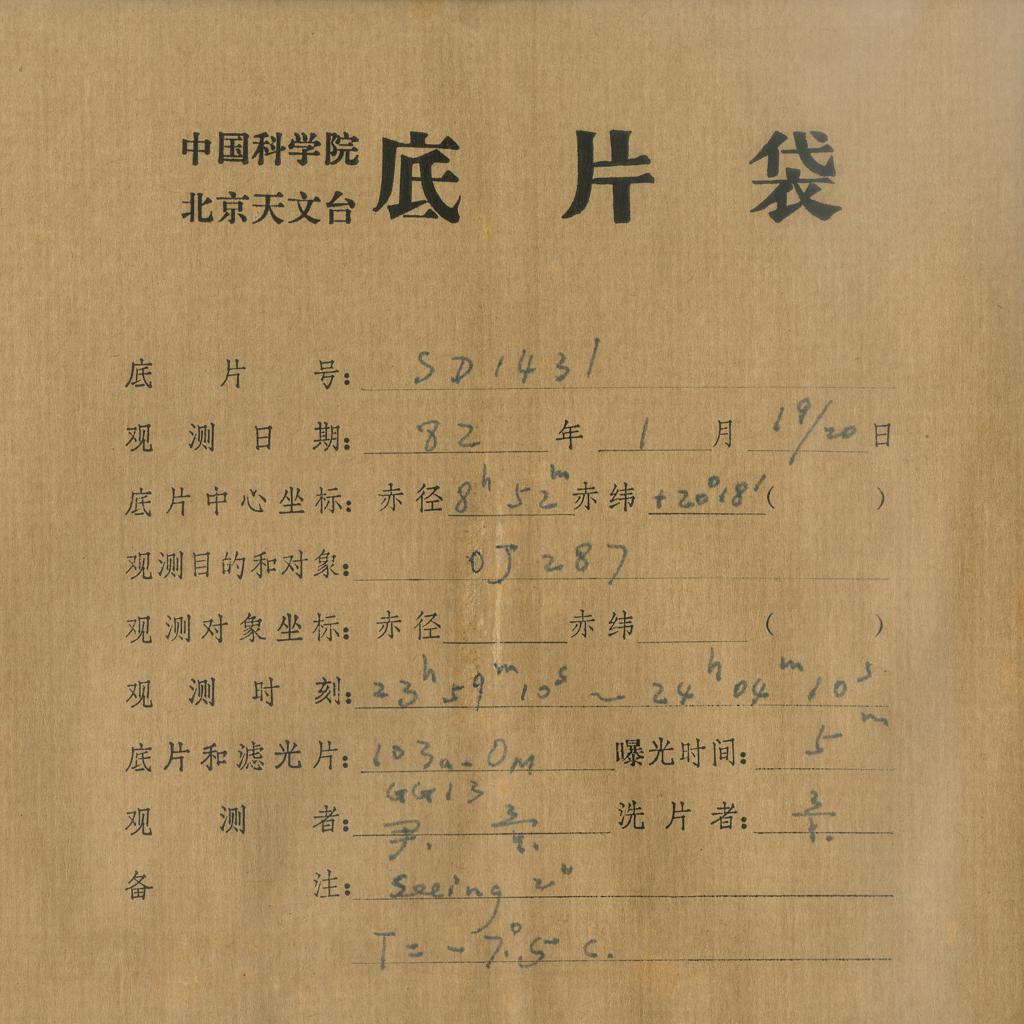 中国科学院
北京天文台
底片袋
底片号: SD1431
观测日期: 82年1月19/20日
底片中心坐标: 赤径8h 52m赤纬+20°18′( )
观测目的和对象: OJ 287
观测对象坐标: 赤径 赤纬 ( )
观测时刻: 23h59m10s ~ 24h04m10s
底片和滤光片: 103a-OM 曝光时间: 5m
GG13
观测者: 洗片者:
备注: Seeing 2″
T=-7°.5 C.